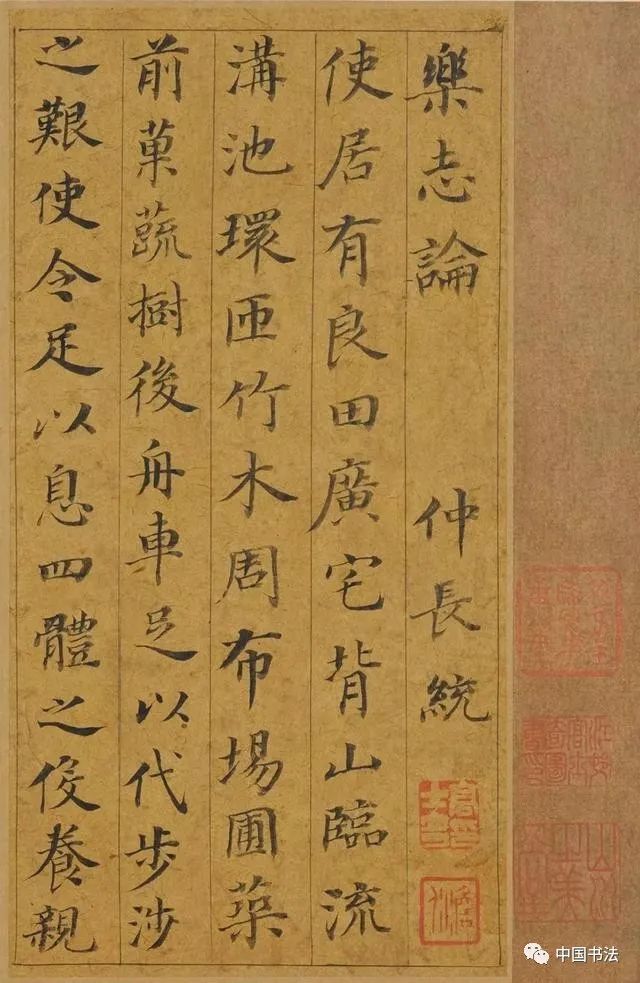 樂志論 仲長統
使居有良田廣宅背山臨流
溝池環匝竹木周布場圃築
前菓蔬樹後舟車足以代步涉
之艱使令足以息四體之役養親
中国书法